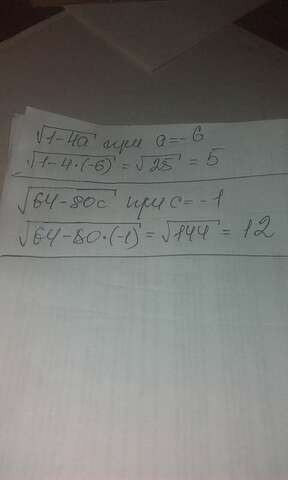 √1-4a при a=-6
√1-4·(-6) = √25 = 5
√64-80c при c=-1
√64-80·(-1) = √144 = 12